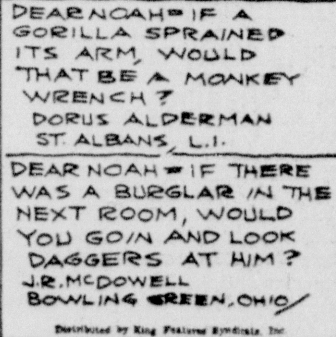 DEAR NOAH= IF A
GORILLA SPRAINED
ITS ARM, WOULD
THAT BE A MONKEY
WRENCH?
DORUS ALDERMAN
ST. ALBANS, L.I.
DEAR NOAH= IF THERE
WAS A BURGLAR IN THE
NEXT ROOM, WOULD
YOU GO IN AND LOOK
DAGGERS AT HIM?
J.R. MCDOWELL
BOWLING GREEN, OHIO
Distributed by King Features Syndicate, Inc.